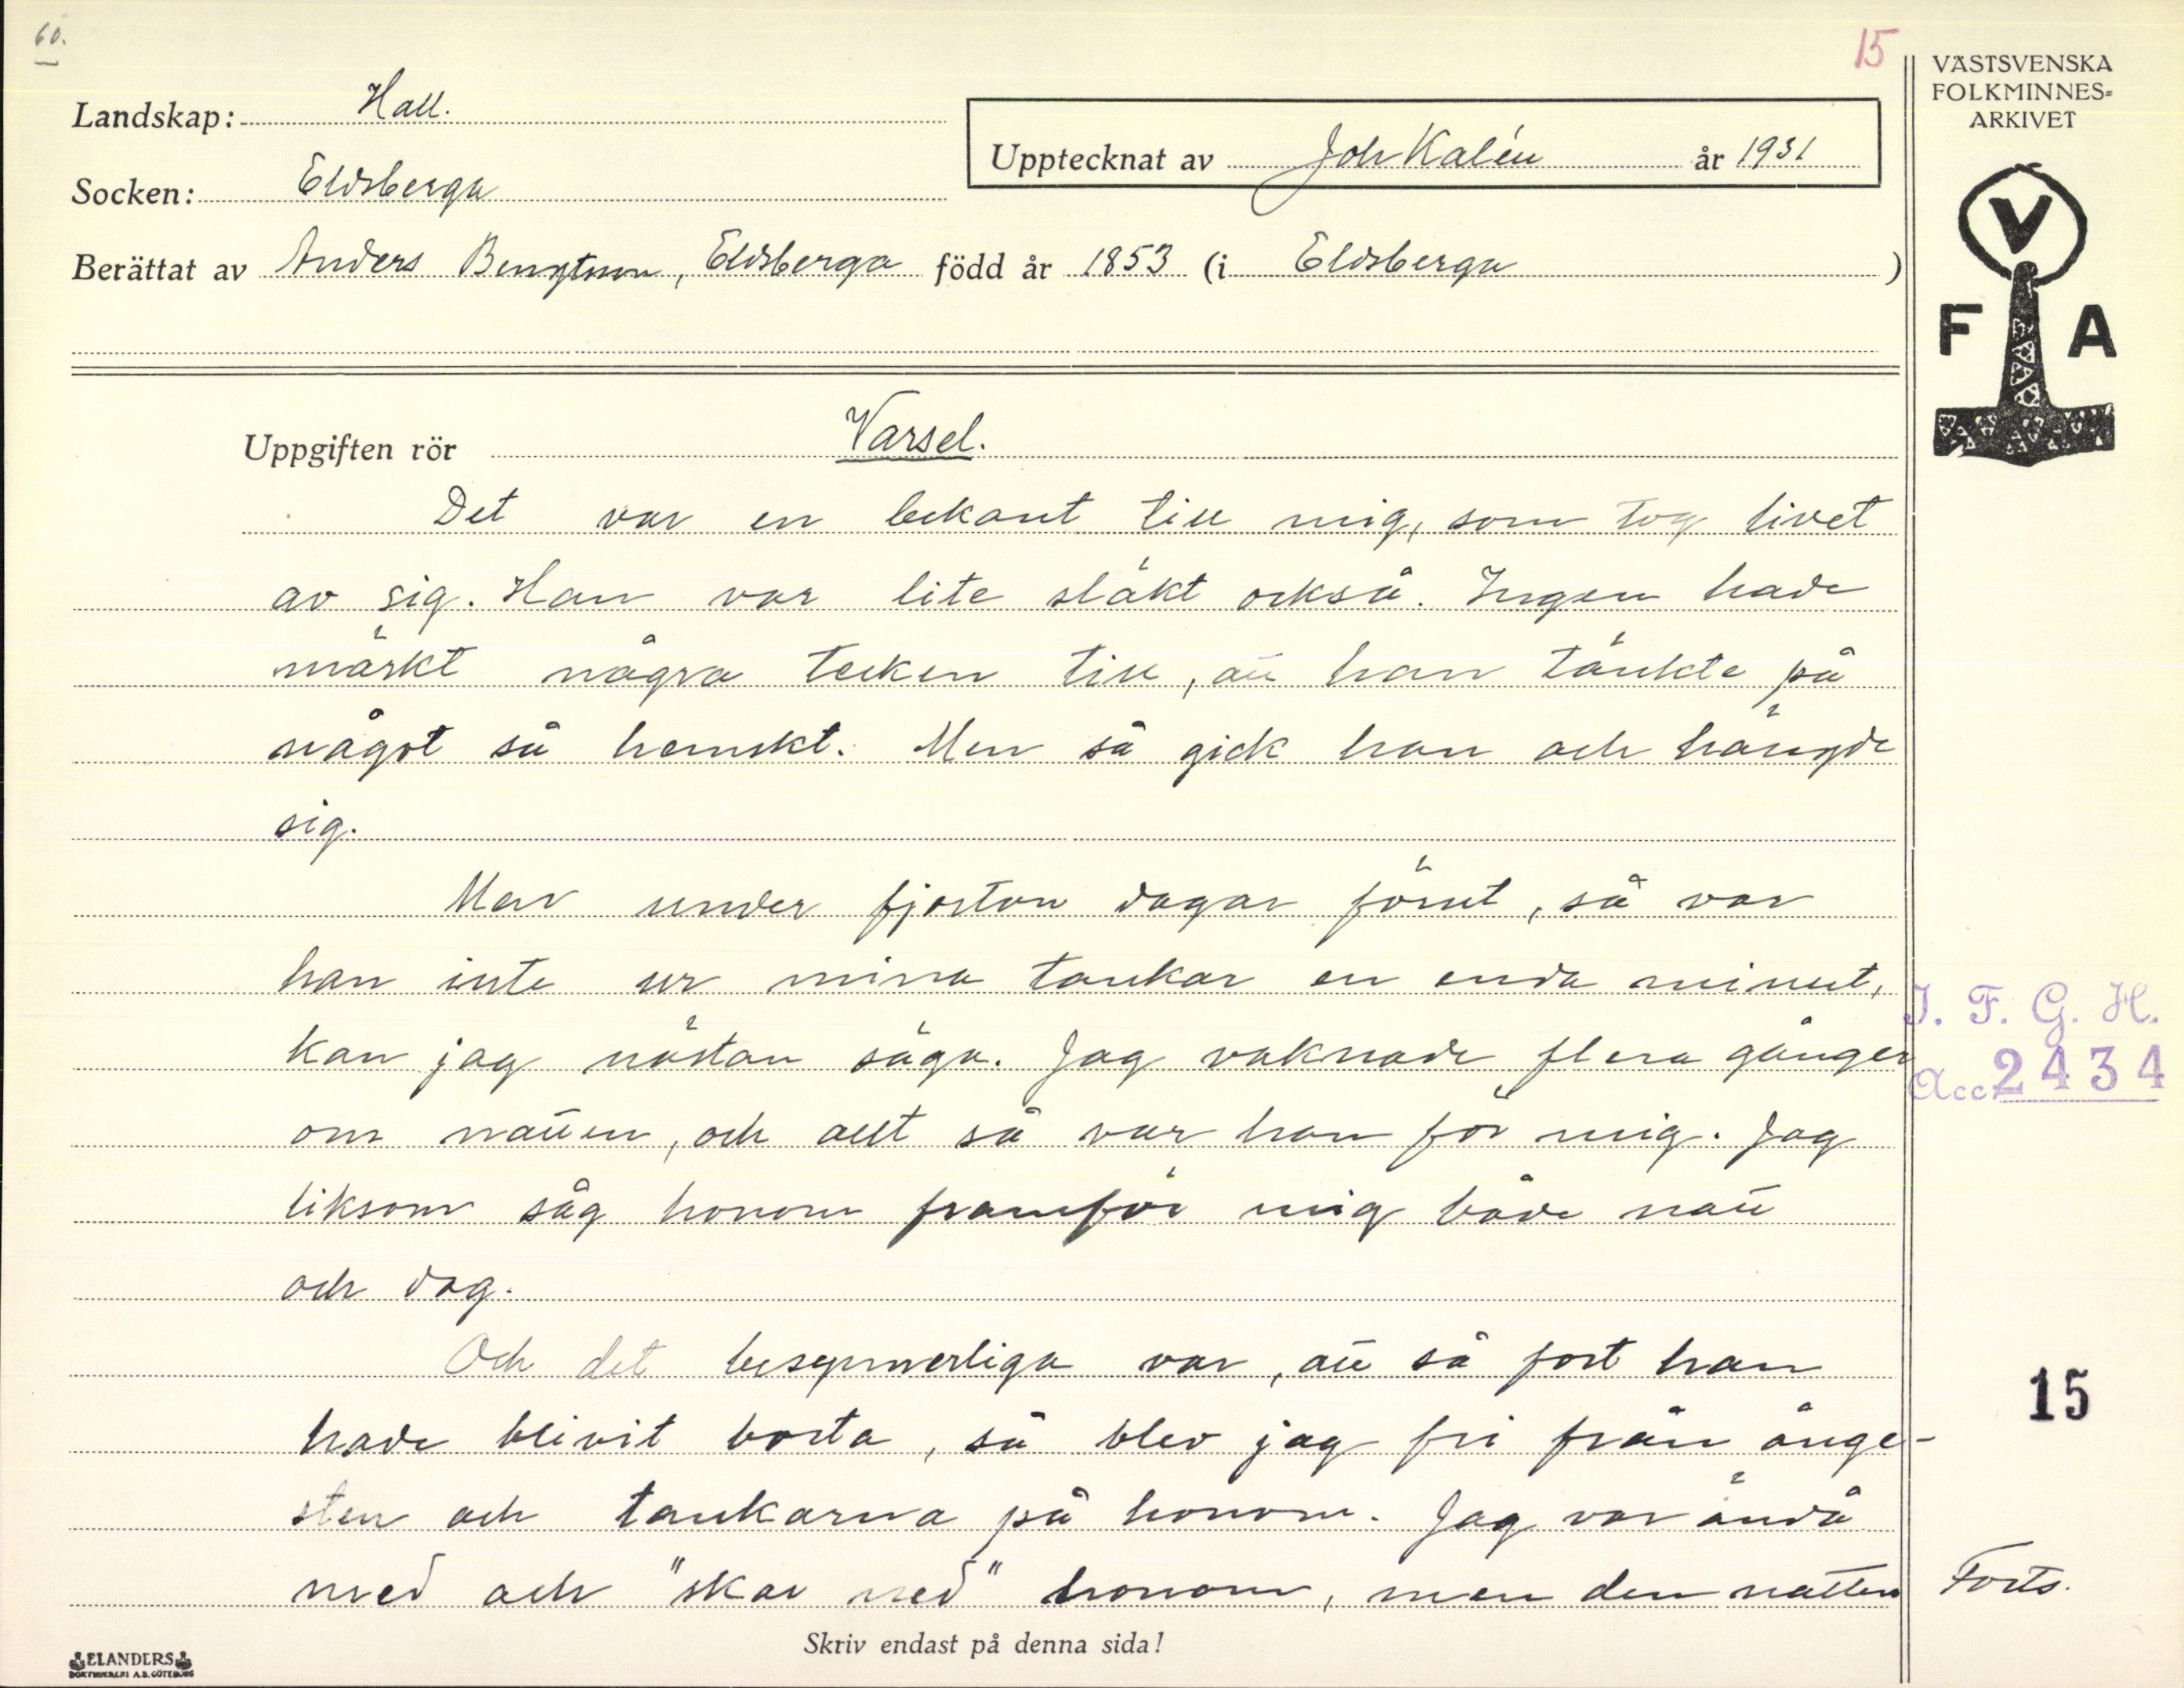 60.
15
VÄSTSVENSKA
FOLKMINNES=
ARKIVET
Landskap: Hall.
Upptecknat av Joh Kalén år 1931
Socken: Eldsberga
Berättat av Anders Bengtsson, Eldsberga född år 1853 (i Eldsberga)
V
F A
Uppgiften rör Varsel.
Det var en bekant till mig, som tog livet
av sig. Han var lite släkt också. Ingen hade
märkt några tecken till, att han tänkte på
något så hemskt. Men så gick han och hängde
sig.
Men under fjorton dagar förut, så var
han inte ur mina tankar en enda minut,
kan jag nästan säga. Jag vaknade flera gånger
om natten, och allt så var han för mig. Jag
liksom såg honom framför mig både natt
och dag.
Och det besynnerliga var, att så fort han
hade blivit borta, så blev jag fri från ånge-
sten och tankarna på honom. Jag var ändå
med och "skar ned" honom, men den natten
I. F. G. H.
Acc. 2434
15
Forts.
Skriv endast på denna sida!
ELANDERS
BOKTRYCKERI A.B. GÖTEBORG